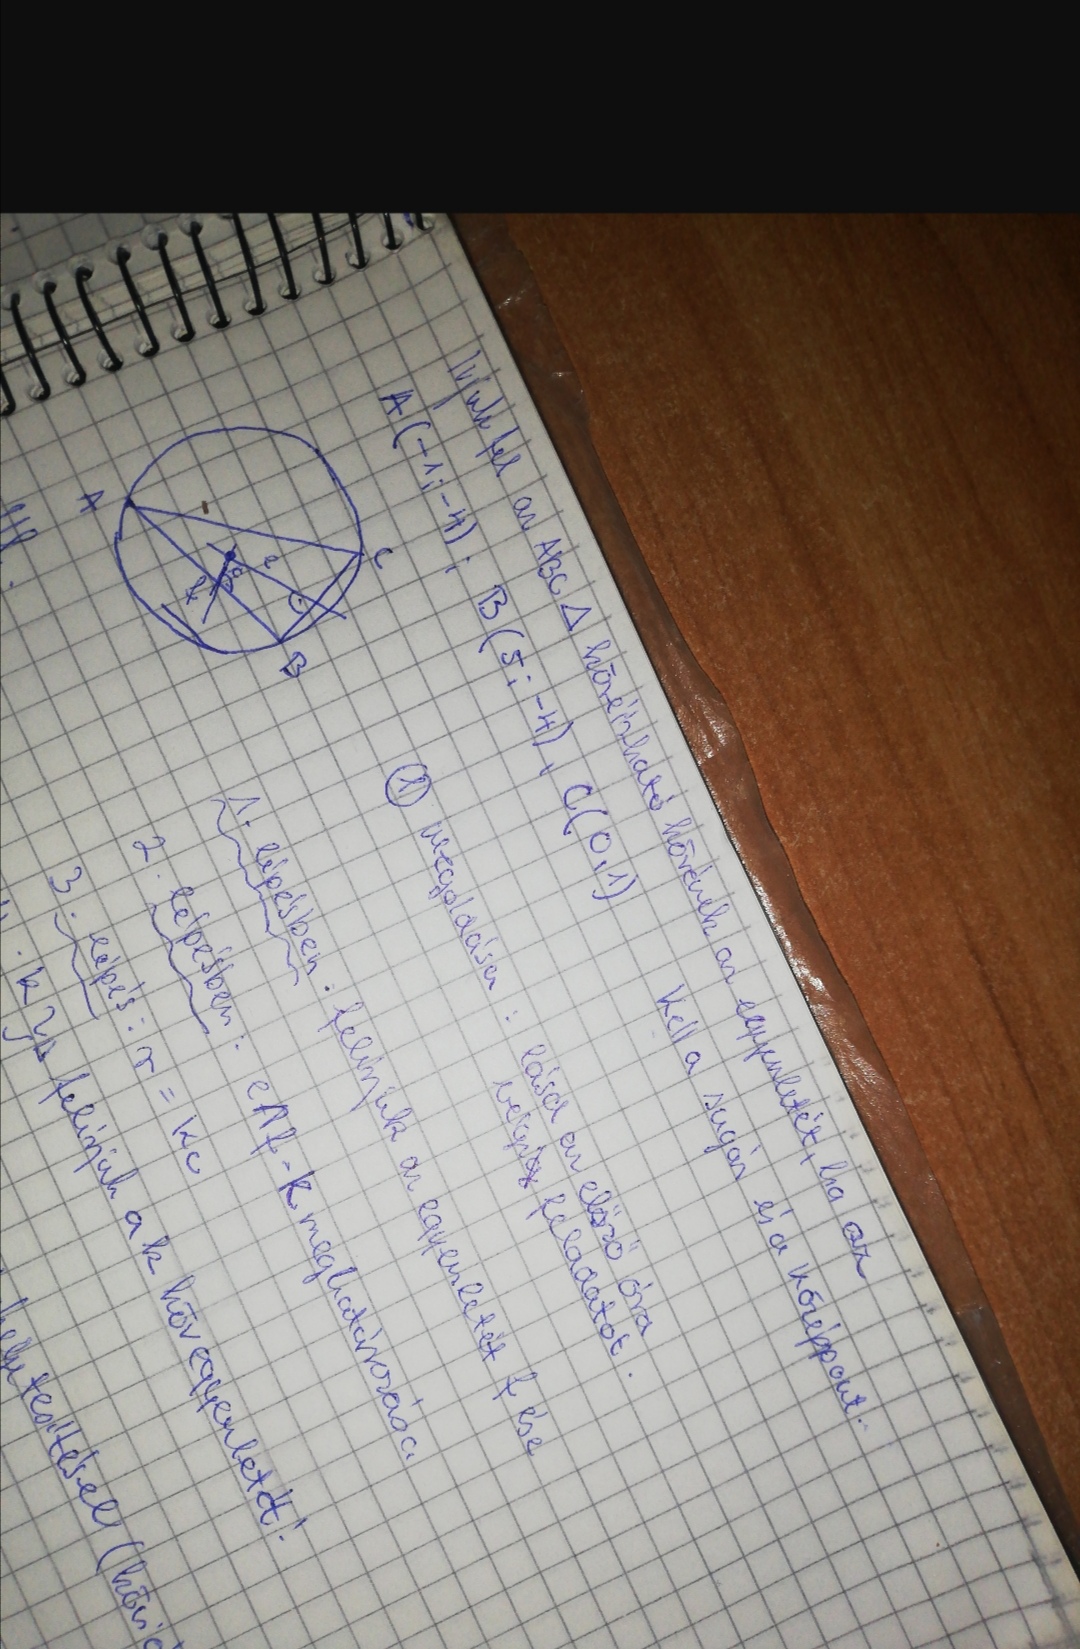 Írjuk fel az ABC Δ köréírható körének az egyenletét, ha az
A(-1;-4); B(5;-4), C(0,1)
Kell a sugár és a középpont.
① megoldás: lásd az előző óra
végig feladatot.
C
e
f
A
B
1. lépésben: felírjuk az egyenletét f és e
2. lépésben: e∩f - K meghatározása
3. lépés: r = KC
k felírjuk a k kör egyenletét!
helyettesítéssel